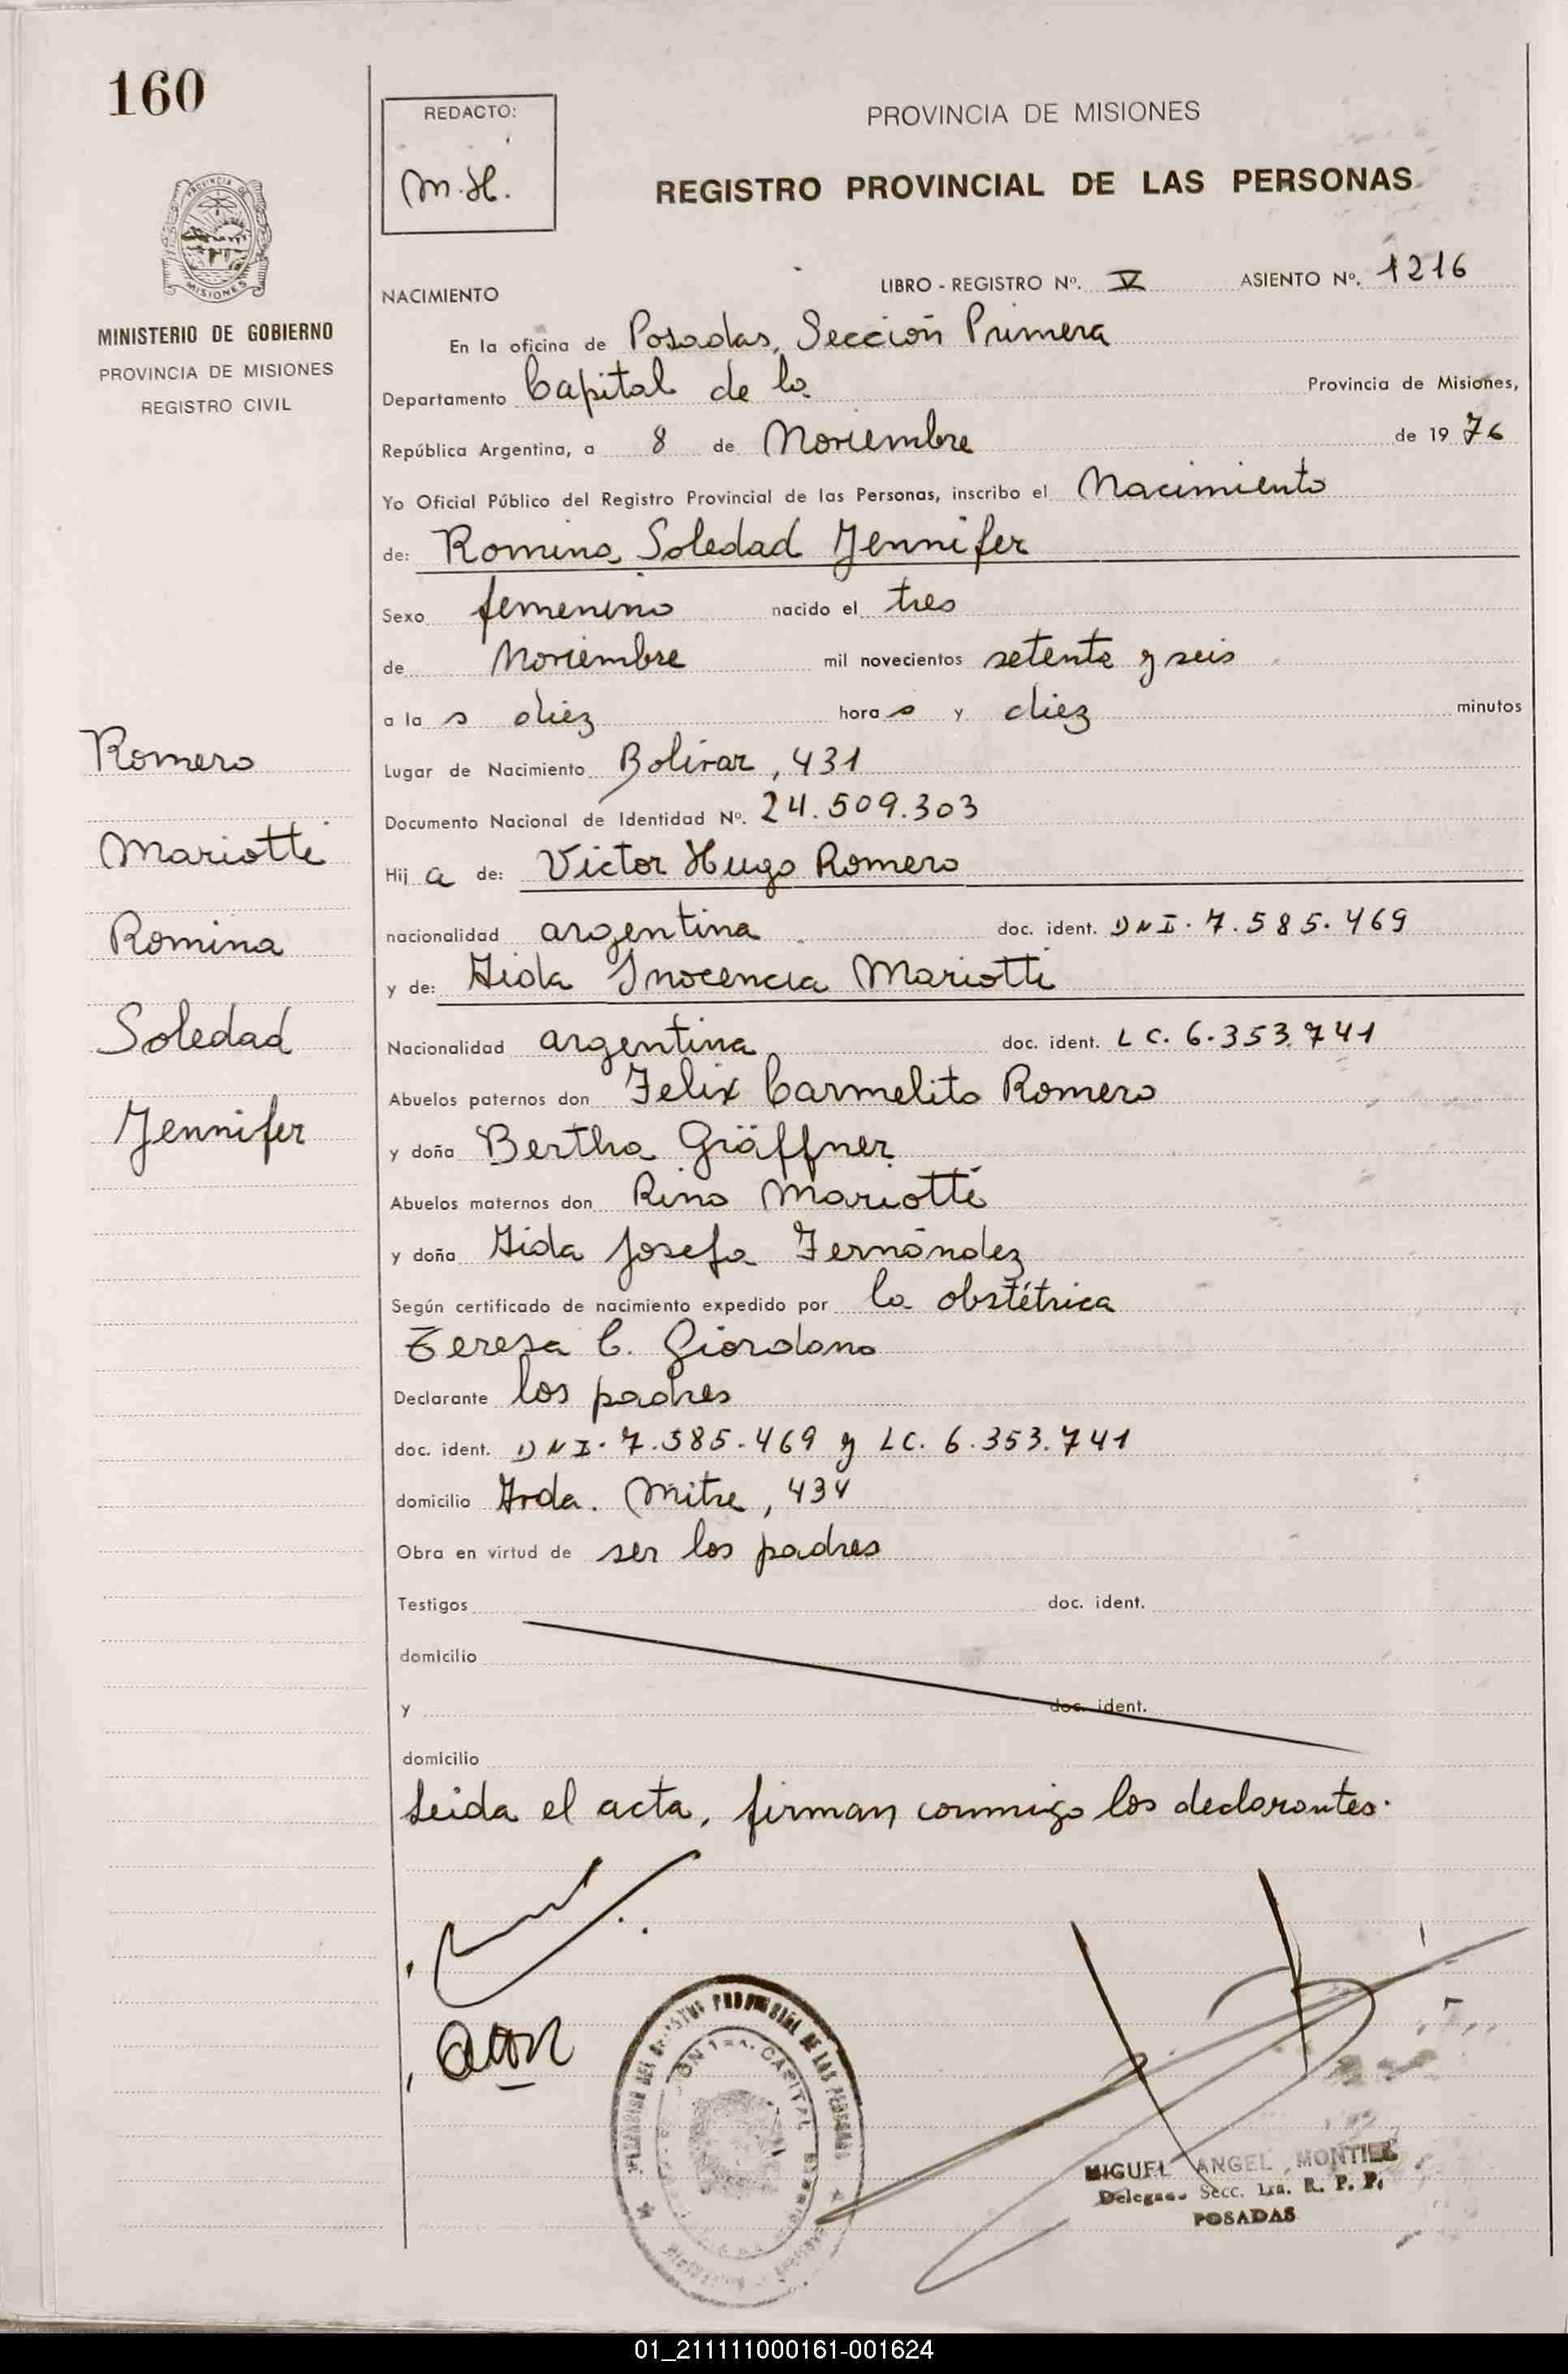 160
REDACTO:
M.H.
PROVINCIA DE MISIONES
REGISTRO PROVINCIAL DE LAS PERSONAS
PROVINCIA DE
MISIONES
MINISTERIO DE GOBIERNO
PROVINCIA DE MISIONES
REGISTRO CIVIL
NACIMIENTO LIBRO - REGISTRO Nº. V ASIENTO Nº. 1216
En la oficina de Posadas, Sección Primera
Departamento Capital de la Provincia de Misiones,
República Argentina, a 8 de Noviembre de 19 76
Yo Oficial Público del Registro Provincial de las Personas, inscribo el Nacimiento
de: Romina Soledad Jennifer
Sexo femenino nacido el tres
de Noviembre mil novecientos setenta y seis
a la s diez hora s y diez minutos
Lugar de Nacimiento Bolívar, 431
Documento Nacional de Identidad Nº. 24.509.303
Hij a de: Victor Hugo Romero
nacionalidad argentina doc. ident. DNI. 7.585.469
y de: Aida Inocencia Mariotti
Nacionalidad argentina doc. ident. LC. 6.353.741
Abuelos paternos don Felix Carmelito Romero
y doña Bertha Gräffner
Abuelos maternos don Rino Mariotti
y doña Aida Josefa Fernández
Según certificado de nacimiento expedido por la obstétrica
Teresa C. Giordano
Declarante los padres
doc. ident. DNI. 7.585.469 y LC. 6.353.741
domicilio Avda. Mitre, 434
Obra en virtud de ser los padres
Testigos doc. ident.
domicilio
y doc. ident.
domicilio
Leida el acta, firman conmigo los declarantes.
Romero
Mariotti
Romina
Soledad
Jennifer
PROVINCIAL DE LAS PERSONAS
CAPITAL
MIGUEL ANGEL MONTIEL
Delegado Secc. 1ra. R. P. P.
POSADAS
01_211111000161-001624